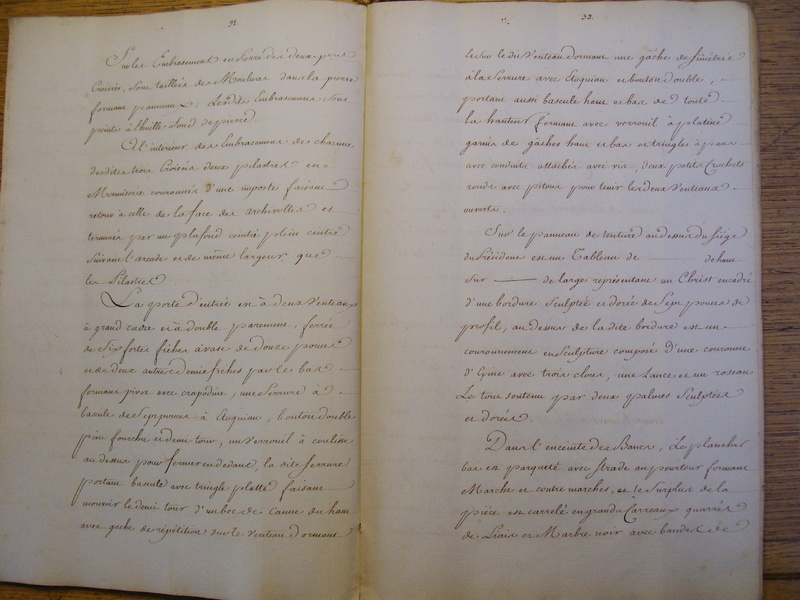 32.
Sur les Embrasemens en pierre des deux petites
Croisées, sont taillées des Moulures dans la pierre
formant panneaux, Lesdits Embrasemens sont
peints à l'huille fond de pierre
A l'intérieur des Embrasemens de chacune
desdites trois Croisées deux pilastres en
Menuiserie couronnés d'une imposte faisant
retour à celle de la face des archivoltes et
terminés par un plafond ceintré plein ceintre
suivant l'arcade et de même largeur que
les Pilastres
La porte d'entrée est à deux Venteaux
à grand cadre et à double parement, ferrée
de Six fortes fiches à vase de douze pouces
et de deux autres demie fiches par le bas
formant pivot avec crapaudine, une Serrure à
bascule de Sept pouces à Anguian, bouton double
pêne fourchu et demi tour, un Verrouil à coulisse
au dessus pour fermer en dedans, la dite Serrure
portant bascule avec tringle platte faisant
mouvoir le demi tour d'un bec de canne du haut
avec gache de répétition sur le Venteau dormant
33.
Et sur le dit Venteau dormant une gâche de simétrie
à la Serrure avec Ecquian et bouton double,
portant aussi bascule haut et bas de toute
la hauteur fermant avec verrouil à platine
garnis de gâches haut et bas et tringles à pans
avec conduits attachés avec vis, deux petits Crochets
ronds avec pitons pour tenir les deux Venteaux
ouverts.
Sur le panneau de tenture au dessus du Siège
du Président est un Tableau de de haut
sur de large représentant un Christ encadré
d'une bordure Sculptée et dorée de Sept pouces de
profil, au dessus de la dite bordure est un
couronnement en Sculpture composé d'une couronne
d'Epine avec trois cloux, une Lance et un roseau
Le tout soutenu par deux palmes Sculptées
et dorées.
Dans l'enceinte des Bancs, Le plancher
bas est parqueté avec Strade au pourtour formant
Marche et contre marches, et le Surplus de la
pièce est carrelé en grands Carreaux quarrés
de Liais et Marbre noir avec bandes de